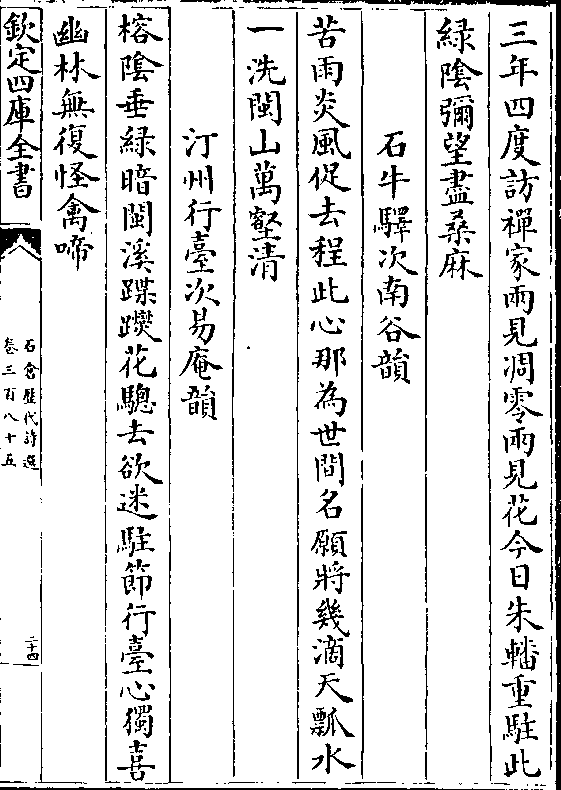 三年四度訪禪家兩見凋零兩見花今日朱轓重駐此
緑隂彌望盡桑麻
石牛驛次南谷韻
苦雨炎風促去程此心那為世間名願將幾滴天瓢水
一洗閩山萬壑清
汀州行臺次易庵韻
榕隂垂緑暗閩溪蹀躞花驄去欲迷駐節行臺心獨喜
幽林無復怪禽啼
欽定四庫全書
石倉歷代詩選
卷三百八十五
二十四